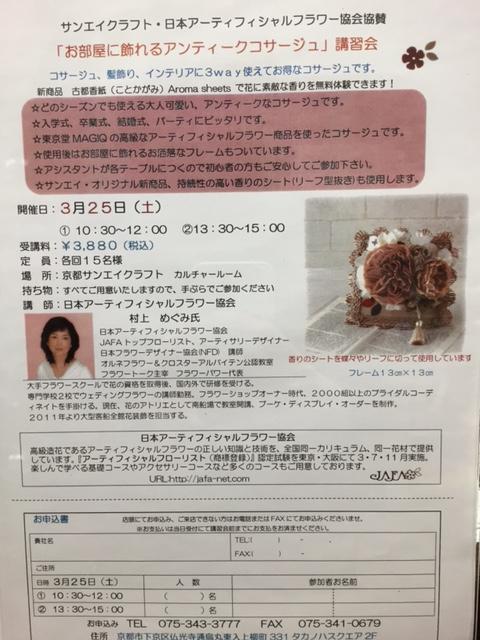 サンエイクラフト・日本アーティフィシャルフラワー協会協賛
「お部屋に飾れるアンティークコサージュ」講習会
コサージュ、髪飾り、インテリアに３ｗａｙ使えてお得なコサージュです。
新商品 古都香紙（ことかがみ）Aroma sheets で花に素敵な香りを無料体験できます！
☆どのシーズンでも使える大人可愛い、アンティークなコサージュです。
☆入学式、卒業式、結婚式、パーティにピッタリです。
☆東京堂 MAGIQ の高級なアーティフィシャルフラワー商品を使ったコサージュです。
☆使用後はお部屋に飾れるお洒落なフレームもついています。
☆アシスタントが各テーブルにつくので初心者の方もご安心してご参加下さい。
☆サンエイ・オリジナル新商品、持続性の高い香りのシート(リーフ型抜き)も使用します。
開催日：３月２５日（土）
① 10：30～12：00 ②13：30～15：00
受講料：￥３,８８０（税込）
定 員：各回１５名様
場 所：京都サンエイクラフト カルチャールーム
持ち物：すべてご用意いたしますので、手ぶらでご参加ください
講 師：日本アーティフィシャルフラワー協会
村上 めぐみ氏
日本アーティフィシャルフラワー協会
JAFAトップフローリスト、アーティサリーデザイナー
日本フラワーデザイナー協会(NFD) 講師
オルネフラワー＆クロスターアルバイテン公認教室
フラワートーク主宰 フラワーパワー代表
香りのシートを蝶々やリーフに切って使用しています
フレーム１３㎝×１３㎝
大手フラワースクールで花の資格を取得後、国内外で研修を受ける。
専門学校２校でウェディングフラワーの講師勤務。フラワーショップオーナー時代、２０００組以上のブライダルコーディネイトを手掛ける。現在、花のアトリエとして南船場で教室開講、ブーケ・ディスプレイ・オーダーを制作。
２０１１年より大型客船全館花装飾を担当する。
日本アーティフィシャルフラワー協会
高級造花であるアーティフィシャルフラワーの正しい知識と技術を、全国同一カリキュラム、同一花材で提供
しています。『アーティフィシャルフローリスト（商標登録）』認定試験を東京・大阪にて３・７・１１月実施。
楽しんで学べる基礎コースやアクセサリーコースなど多くのコースもご用意しております。
URL:http://jafa-net.com
JAFA
お申込書
店頭にてお申込み、ご来店できない方はお電話または FAX にてお申込みくださいませ。
※お支払いは当日受付にて講習会前までにお支払をお済ませください。
貴社名
TEL:( ) - 、
FAX( ) -
ご住所
日時 ３月２５日（土） 人 数 参加者お名前
① 10：30～12：00 （ ）名
② 13：30～15：00 （ ）名
お申込み TEL 075-343-3777 FAX 075-341-0679
住所 京都市下京区仏光寺通烏丸東入上柳町 331 タカノハスクエア 2F